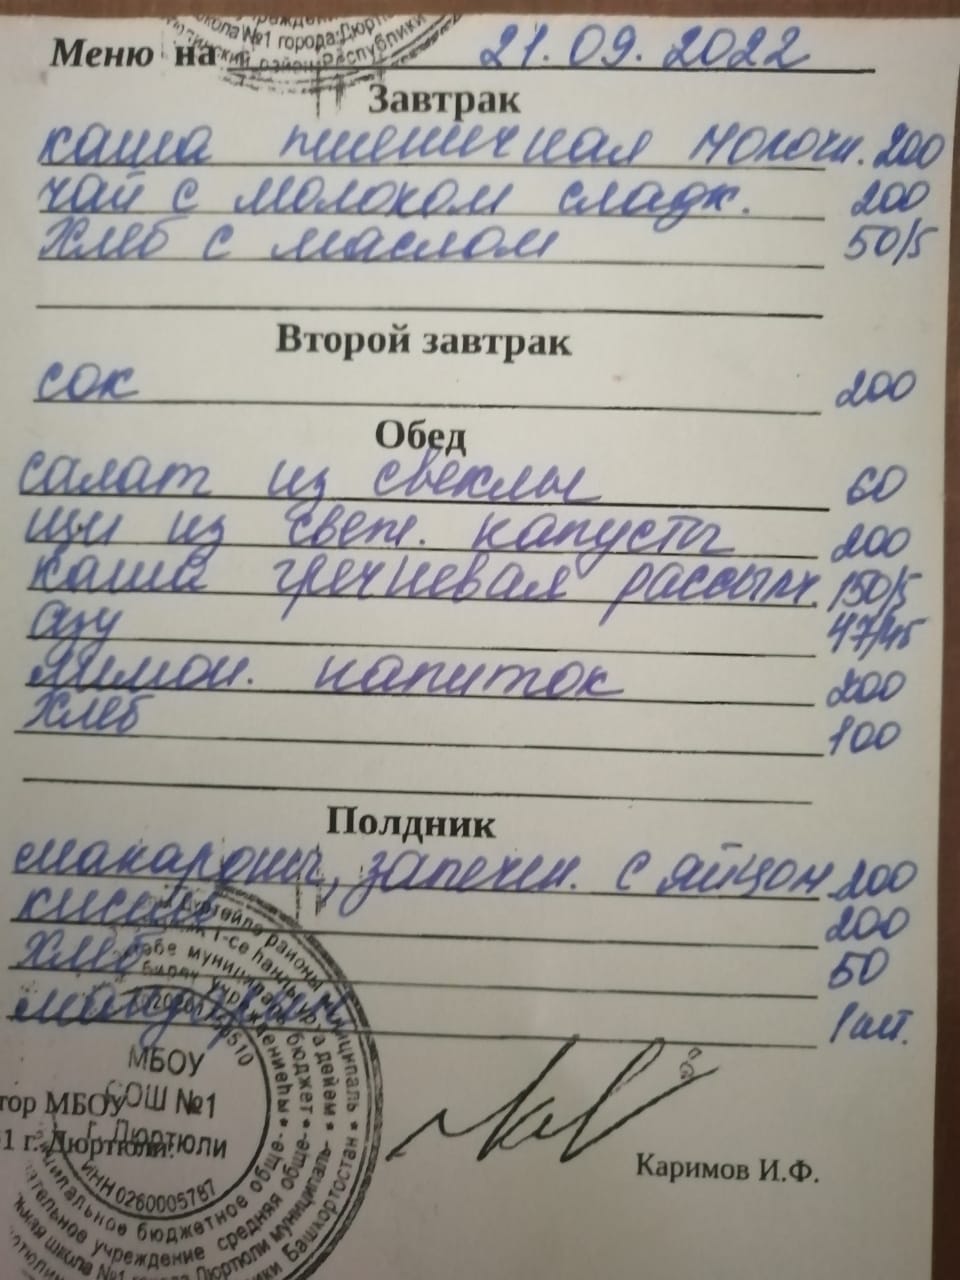 Меню на 21.09.2022
Завтрак
каша пшеничная молочн. 200
чай с молоком сладк. 200
хлеб с маслом 50/5
Второй завтрак
сок 200
Обед
салат из свеклы 60
щи из свеж. капусты 200
каша гречневая рассыпч. 150/5
азу 47/45
лимон. напиток 200
хлеб 100
Полдник
макароны, запечен. с яйцом 200
кисель 200
хлеб 50
мандарин 1 шт.
МБОУ
СОШ №1
г. Дюртюли
ИНН 0260005787
тор МБОУ
1 г. Дюртюли:
Каримов И.Ф.